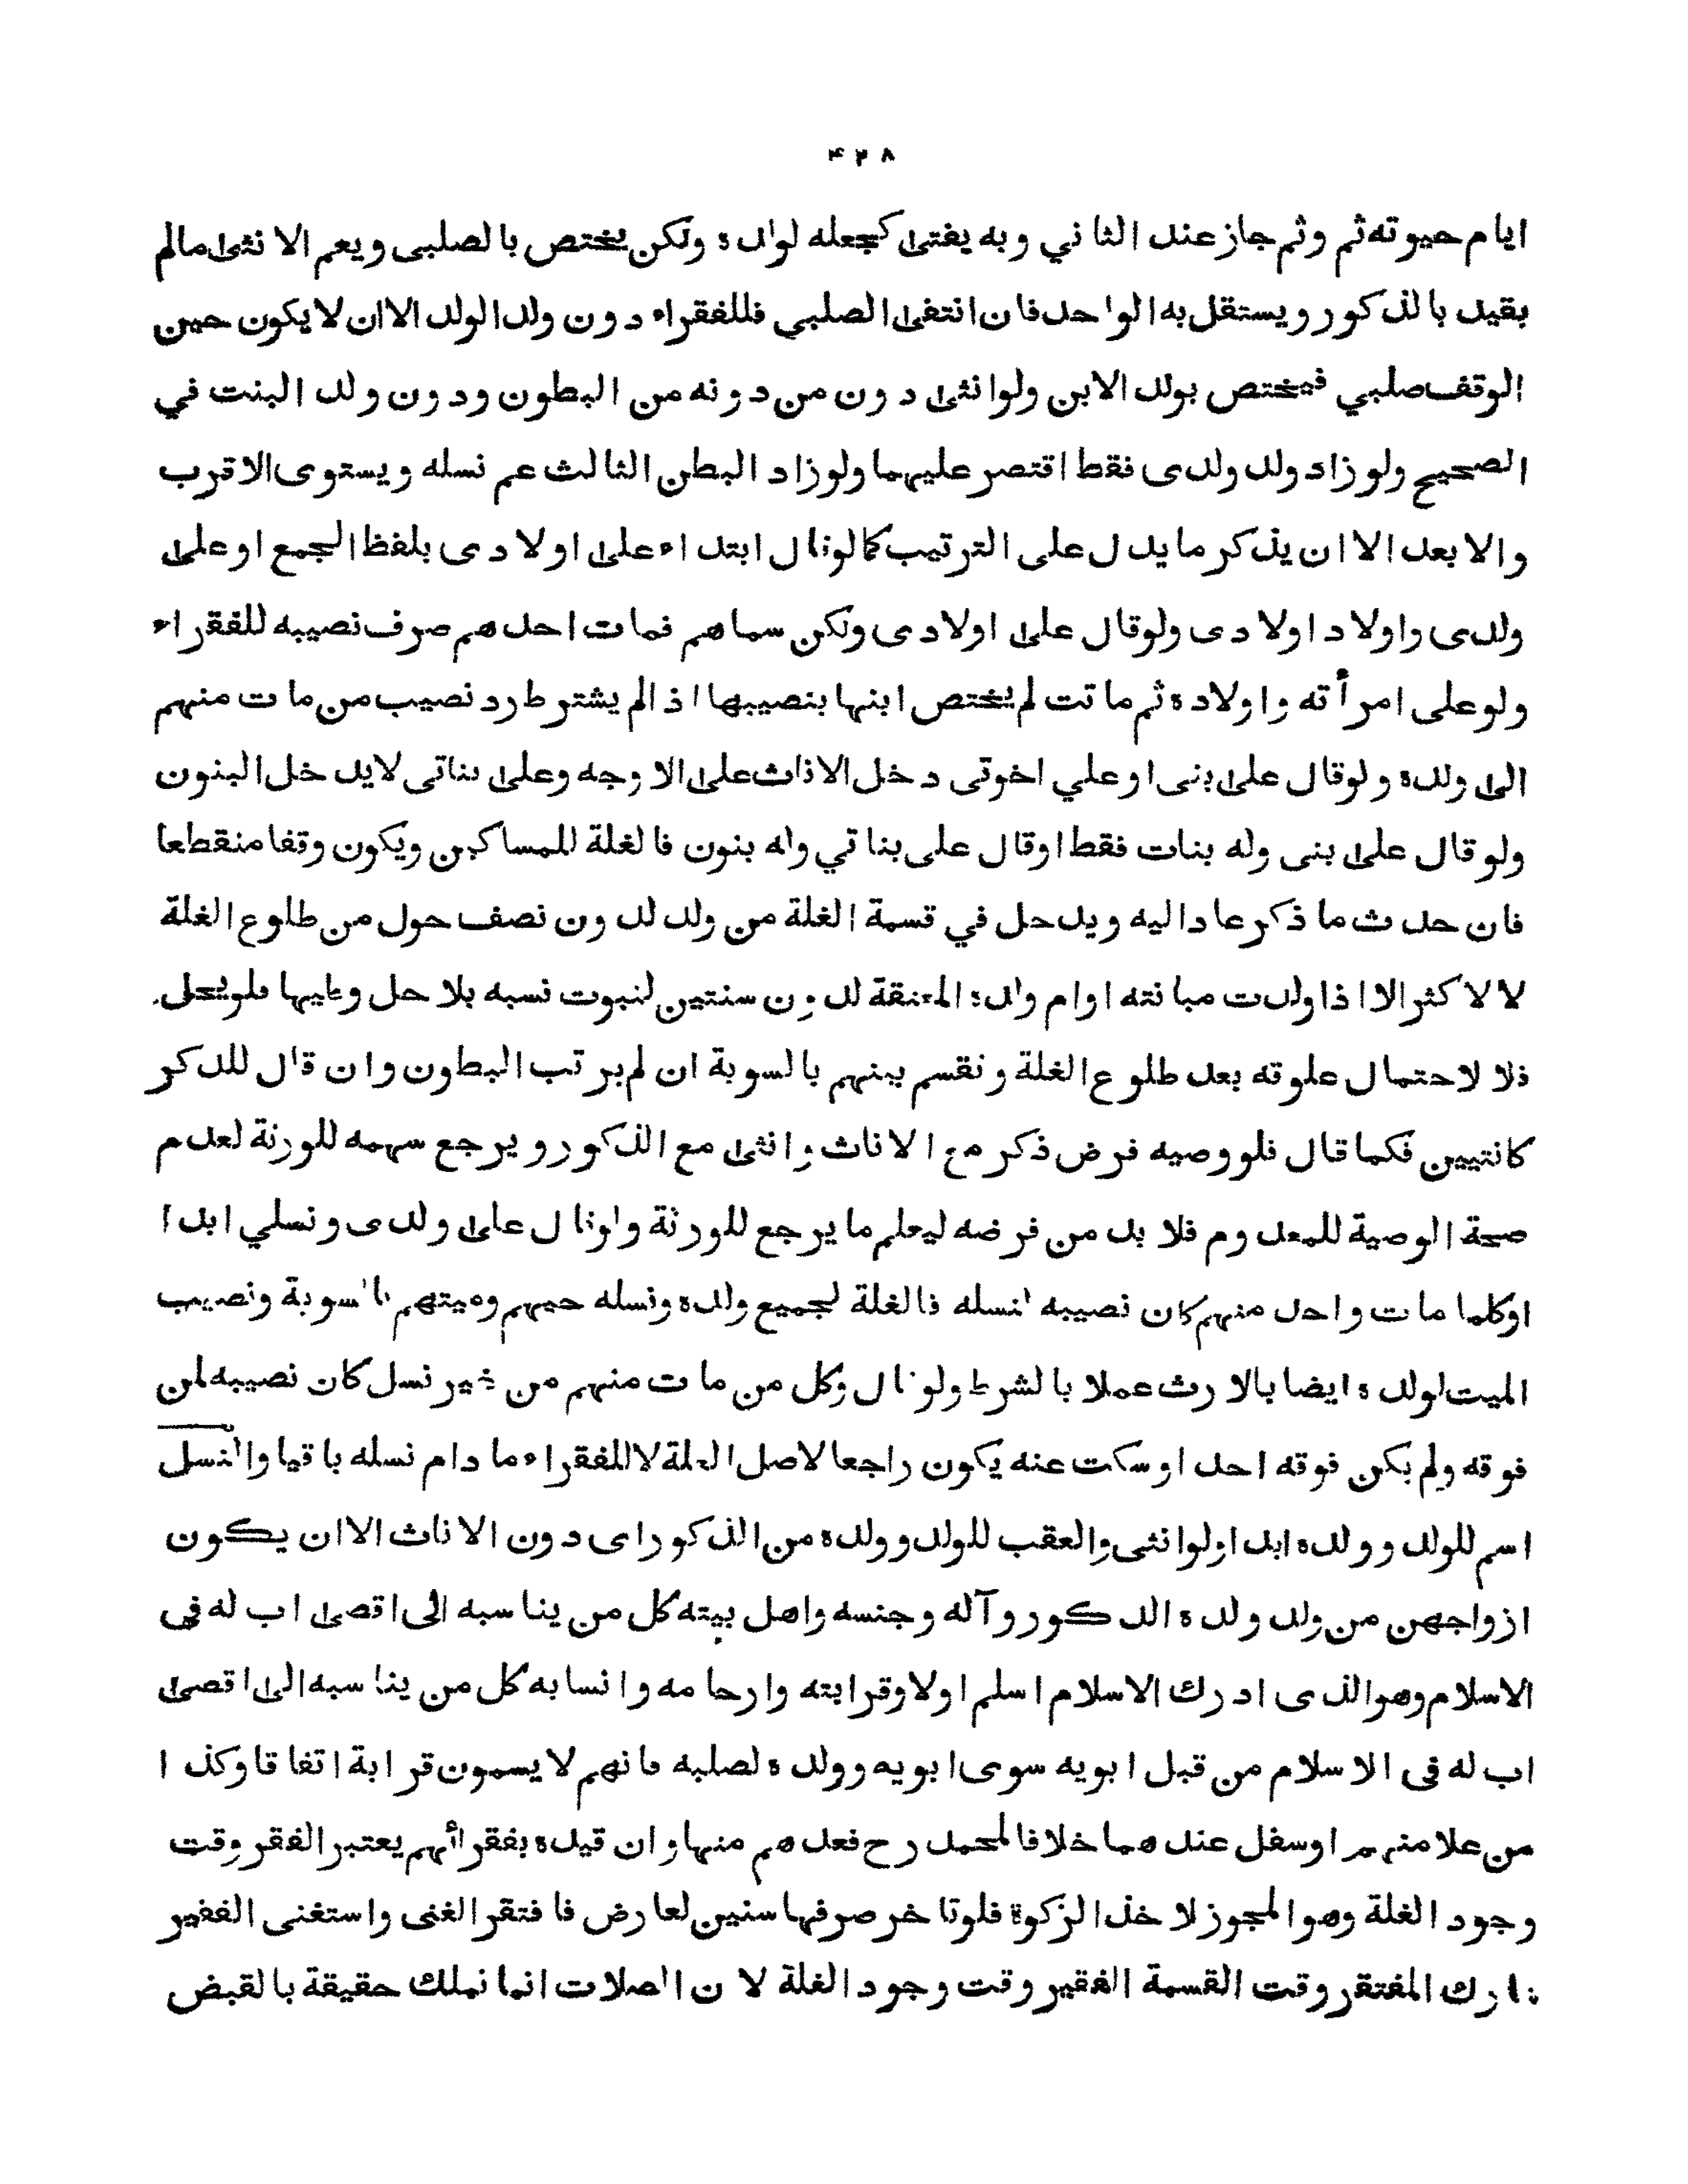 ۴۲۸
ايام حيوته ثم وثم جاز عند الثاني وبه يفتى كجعله لولده ولكن يختص بالصلبى ويعم الانثى مالم
يقيد بالذكور ويستقل به الواحد فان انتفى الصلبي فللفقراء دون ولد الولد الا ان لا يكون حين
الوقف صلبي فيختص بولد الابن ولو انثى دون من دونه من البطون ودون ولد البنت في
الصحيح ولو زاد ولد ولدى فقط اقتصر عليهما ولو زاد البطن الثالث عم نسله ويستوى الاقرب
والابعد الا ان يذكر ما يدل على الترتيب كما لو قال ابتداء على اولادى بلفظ الجمع او على
ولدى واولاد اولادى ولو قال على اولادى ولكن سماهم فمات احدهم صرف نصيبه للفقراء
ولو على امرأته واولاده ثم ماتت لم يختص ابنها بنصيبها اذا لم يشترط رد نصيب من مات منهم
الى ولده ولو قال على بنى او علي اخوتى دخل الاناث على الاوجه وعلى بناتى لا يدخل البنون
ولو قال على بنى وله بنات فقط او قال على بناتي وله بنون فالغلة للمساكين ويكون وقفا منقطعا
فان حدث ما ذكر عاد اليه ويدخل في قسمة الغلة من ولد لدون نصف حول من طلوع الغلة
لا لاكثر الا اذا ولدت مبانته او ام ولده المعتقة لدون سنتين لثبوت نسبه بلا حل وطيها فلو يحل
فلا لاحتمال علوقه بعد طلوع الغلة ونقسم بينهم بالسوية ان لم يرتب البطون وان قال للذكر
كانثيين فكما قال فلو وصيه فرض ذكر مع الاناث وانثى مع الذكور ويرجع سهمه للورثة لعدم
صحة الوصية للمعدوم فلا بد من فرضه ليعلم ما يرجع للورثة ولو قال على ولدى ونسلي ابدا
اوكلما مات واحد منهم كان نصيبه لنسله فالغلة لجميع ولده ونسله حيهم وميتهم بالسوية ونصيب
الميت لولده ايضا بالارث عملا بالشرط ولو قال وكل من مات منهم من غير نسل كان نصيبه لمن
فوقه ولم يكن فوقه احد او سكت عنه يكون راجعا لاصل الغلة لا للفقراء ما دام نسله باقيا والنسل
اسم للولد وولده ابدا ولو انثى والعقب للولد وولده من الذكور اى دون الاناث الا ان يكون
ازواجهن من ولد ولده الذكور وآله وجنسه واهل بيته كل من يناسبه الى اقصى اب له فى
الاسلام وهو الذى ادرك الاسلام اسلم اولا وقرابته وارحامه وانسابه كل من يناسبه الى اقصى
اب له فى الاسلام من قبل ابويه سوى ابويه وولده لصلبه فانهم لا يسمون قرابة اتفاقا وكذا
من علا منهم او سفل عندهما خلافا لمحمد رح فعدهم منها وان قيده بفقرائهم يعتبر الفقر وقت
وجود الغلة وهو المجوز لاخذ الزكوة فلو تاخر صرفها سنين لعارض فافتقر الغنى واستغنى الفقير
شارك المفتقر وقت القسمة الفقير وقت وجود الغلة لان الصلات انما تملك حقيقة بالقبض